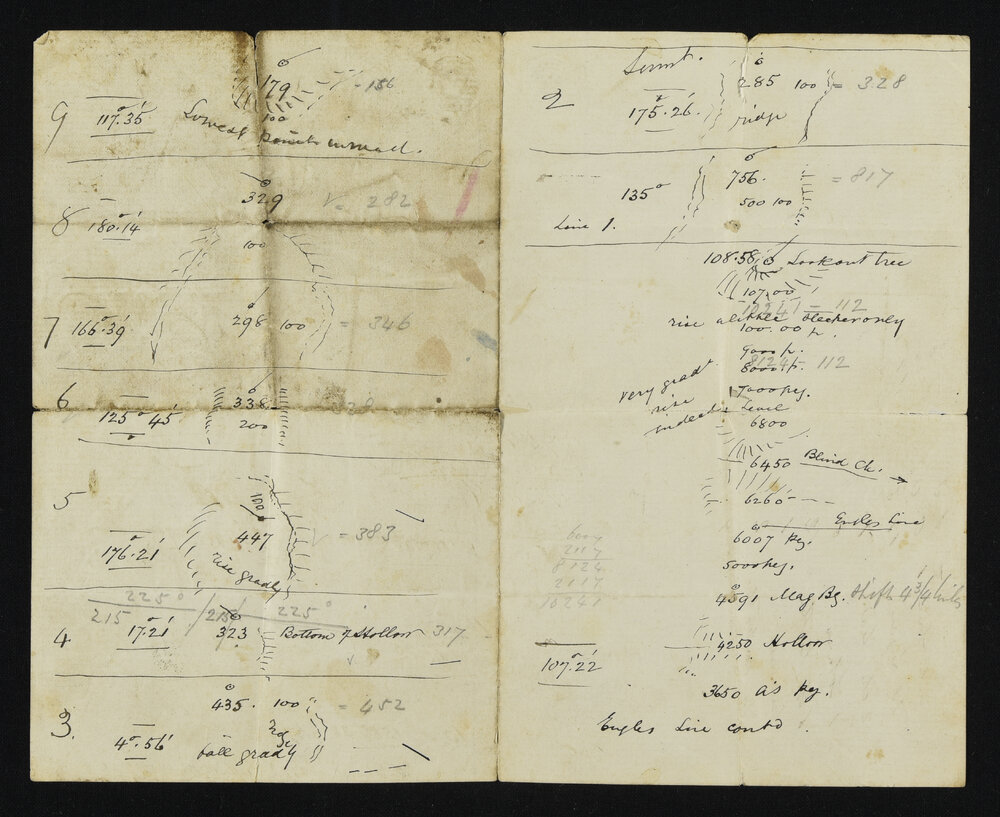 179 = 156
9 117°.35'
100
Lowest point
329 282
8 180°.14'
100
7 166°.39' 298 100 = 346
6 338
125° 45' 200
5 100
447 = 383
176°.21'
rise gradly
225° 225°
215
4 17°.21' 323 Bottom of Hollow 317
435. 100 = 452
3.
4°.56' fall gradly
285 100 = 328
2 175°.26' ridge
756. = 817
135° 500 100
Line 1.
108.58 Lookout tree
107.00
10241 = 112
rise a little only
100.00 p.
9000 p.
8124 = 112
8000 p.
very gradl 7000 peg.
rise Level
indeed 6800
6450 Blind Ck.
6260
Engles Line
6007 peg.
6007
2117
8124
2117
10241
5000 peg.
4591 Mag Bg.
4250 Hollow
107°.22
3650 peg.
Engles Line contd.